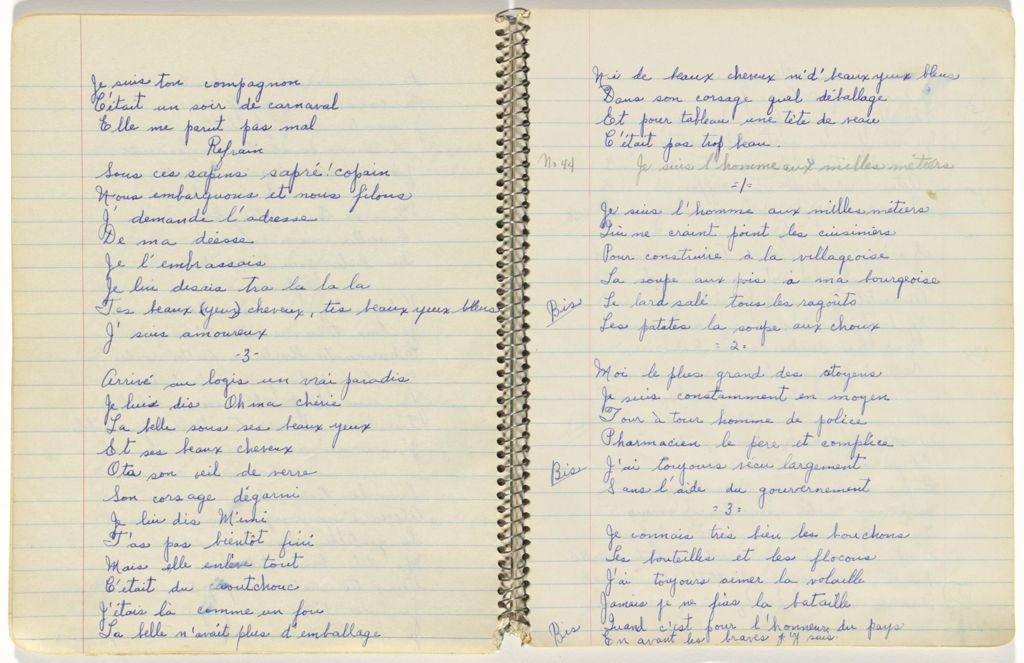 Je suis ton compagnon
C'était un soir de carnaval
Elle me parut pas mal
Refrain
Sous ces sapins sapré! copain
Nous embarquons et nous filons
J' demande l'adresse
De ma déesse
Je l'embrassais
Je lui disais tra la la la
Tes beaux (yeux) cheveux, tes beaux yeux bleus
J' suis amoureux
-3-
Arrivé au logis un vrai paradis
Je lui dis Oh ma chérie
La belle sous ses beaux yeux
Et ses beaux cheveux
Ota son oeil de verre
Son corsage dégarni
Je lui dis Mimi
T'as pas bientôt fini
Mais elle enlève tout
C'était du caoutchouc
J'étais là comme un fou
La belle n'avait plus d'emballage
Ni de beaux cheveux ni d' beaux yeux bleus
Dans son corsage quel déballage
Et pour tableau une tête de veau
C'était pas trop beau.
No 44 Je suis l'homme aux milles métiers
=1=
Je suis l'homme aux milles métiers
Qui ne craint point les cuisiniers
Pour construire à la villageoise
La soupe aux pois à ma bourgeoise
Bis Le lard salé tous les ragoûts
Les patates la soupe aux choux
=2=
Moi le plus grand des citoyens
Je suis constamment en moyen
Tour à tour homme de police
Pharmacien le père et complice
Bis J'ai toujours vécu largement
Sans l'aide du gouvernement
=3=
Je connais très bien les bouchons
Les bouteilles et les flocons
J'ai toujours aimer la volaille
Jamais je ne fuis la bataille
Bis Quand c'est pour l'honneur du pays
En avant les braves j'y suis